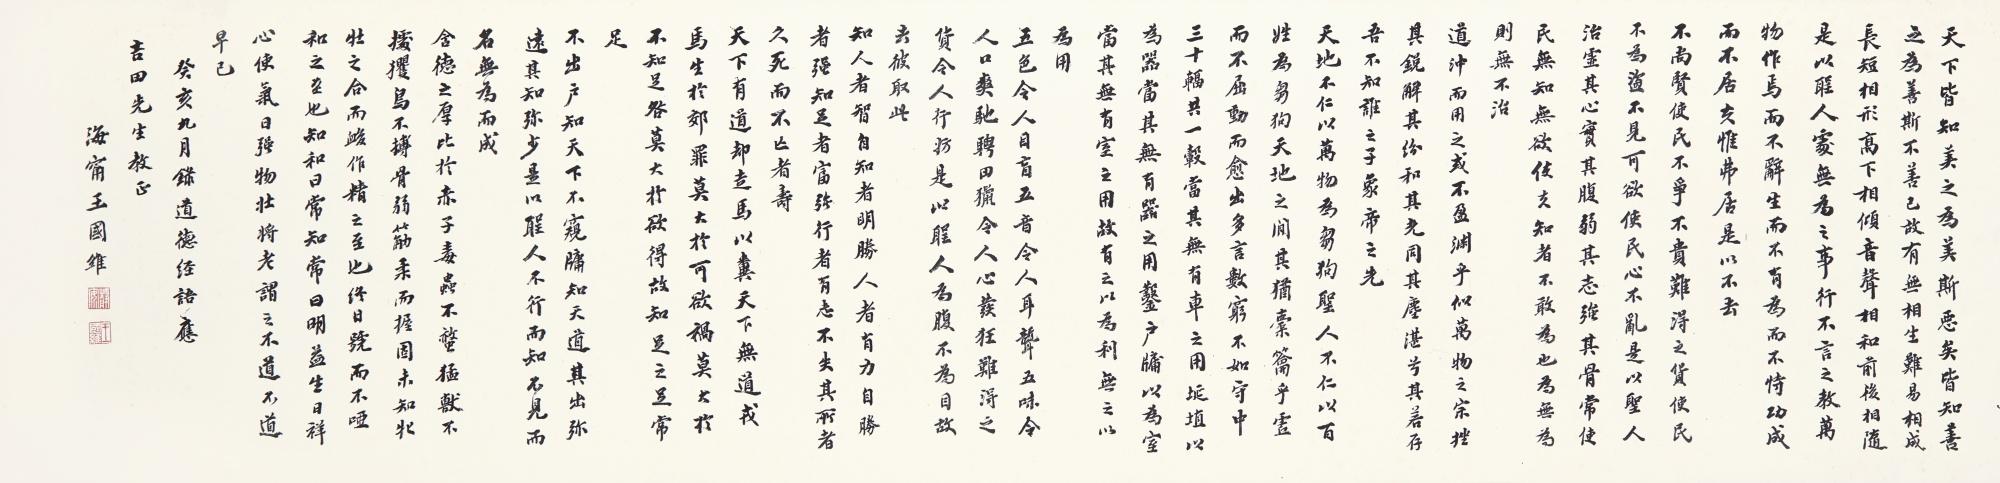 天下皆知美之為美斯惡矣皆知善
之為善斯不善已故有無相生難易相成
長短相形高下相傾音聲相和前後相隨
是以聖人處無為之事行不言之教萬
物作焉而不辭生而不有為而不恃功成
而不居夫惟弗居是以不去
不尚賢使民不爭不貴難得之貨使民
不為盜不見可欲使民心不亂是以聖人
治虛其心實其腹弱其志強其骨常使
民無知無欲使夫知者不敢為也為無為
則無不治
道沖而用之或不盈淵乎似萬物之宗挫
其銳解其紛和其光同其塵湛兮其若存
吾不知誰之子象帝之先
天地不仁以萬物為芻狗聖人不仁以百
姓為芻狗天地之間其猶橐籥乎虛
而不屈動而愈出多言數窮不如守中
三十輻共一轂當其無有車之用埏埴以
為器當其無有器之用鑿戶牖以為室
當其無有室之用故有之以為利無之以
為用
五色令人目盲五音令人耳聾五味令
人口爽馳騁田獵令人心發狂難得之
貨令人行妨是以聖人為腹不為目故
去彼取此
知人者智自知者明勝人者有力自勝
者強知足者富強行者有志不失其所者
久死而不亡者壽
天下有道却走馬以糞天下無道戎
馬生於郊罪莫大於可欲禍莫大於
不知足咎莫大於欲得故知足之足常
足
不出戶知天下不窺牖知天道其出彌
遠其知彌少是以聖人不行而知不見而
名無為而成
含德之厚比於赤子毒蟲不螫猛獸不
攫鳥不搏骨弱筋柔而握固未知牝
牡之合而峻作精之至也終日號而不啞
和之至也知和曰常知常曰明益生曰祥
心使氣曰強物壯將老謂之不道不道
早已
癸亥九月錄道德經語應
吉田先生教正
海甯王國維